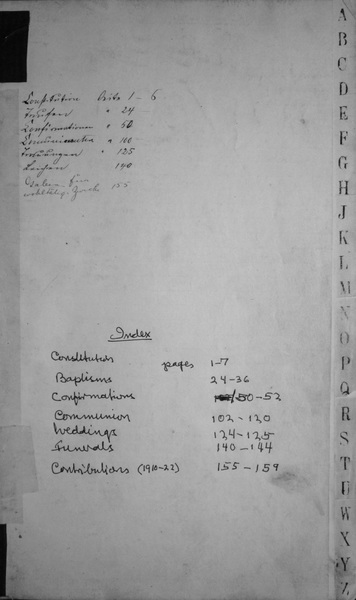 Constitution Seite 1-6
Taufen " 24
Confirmationen " 50
Communicanten " 100
Trauungen " 125
Leichen 140
155
Index
Constitution pages 1-7
Baptisms 24-36
Confirmations 50-52
Communion 102-120
Weddings 124-125
Funerals 140-144
Contributions (1910-22) 155-159
A
B
C
D
E
F
G
H
J
K
L
M
N
O
P
Q
R
S
T
U
W
X
Y
Z